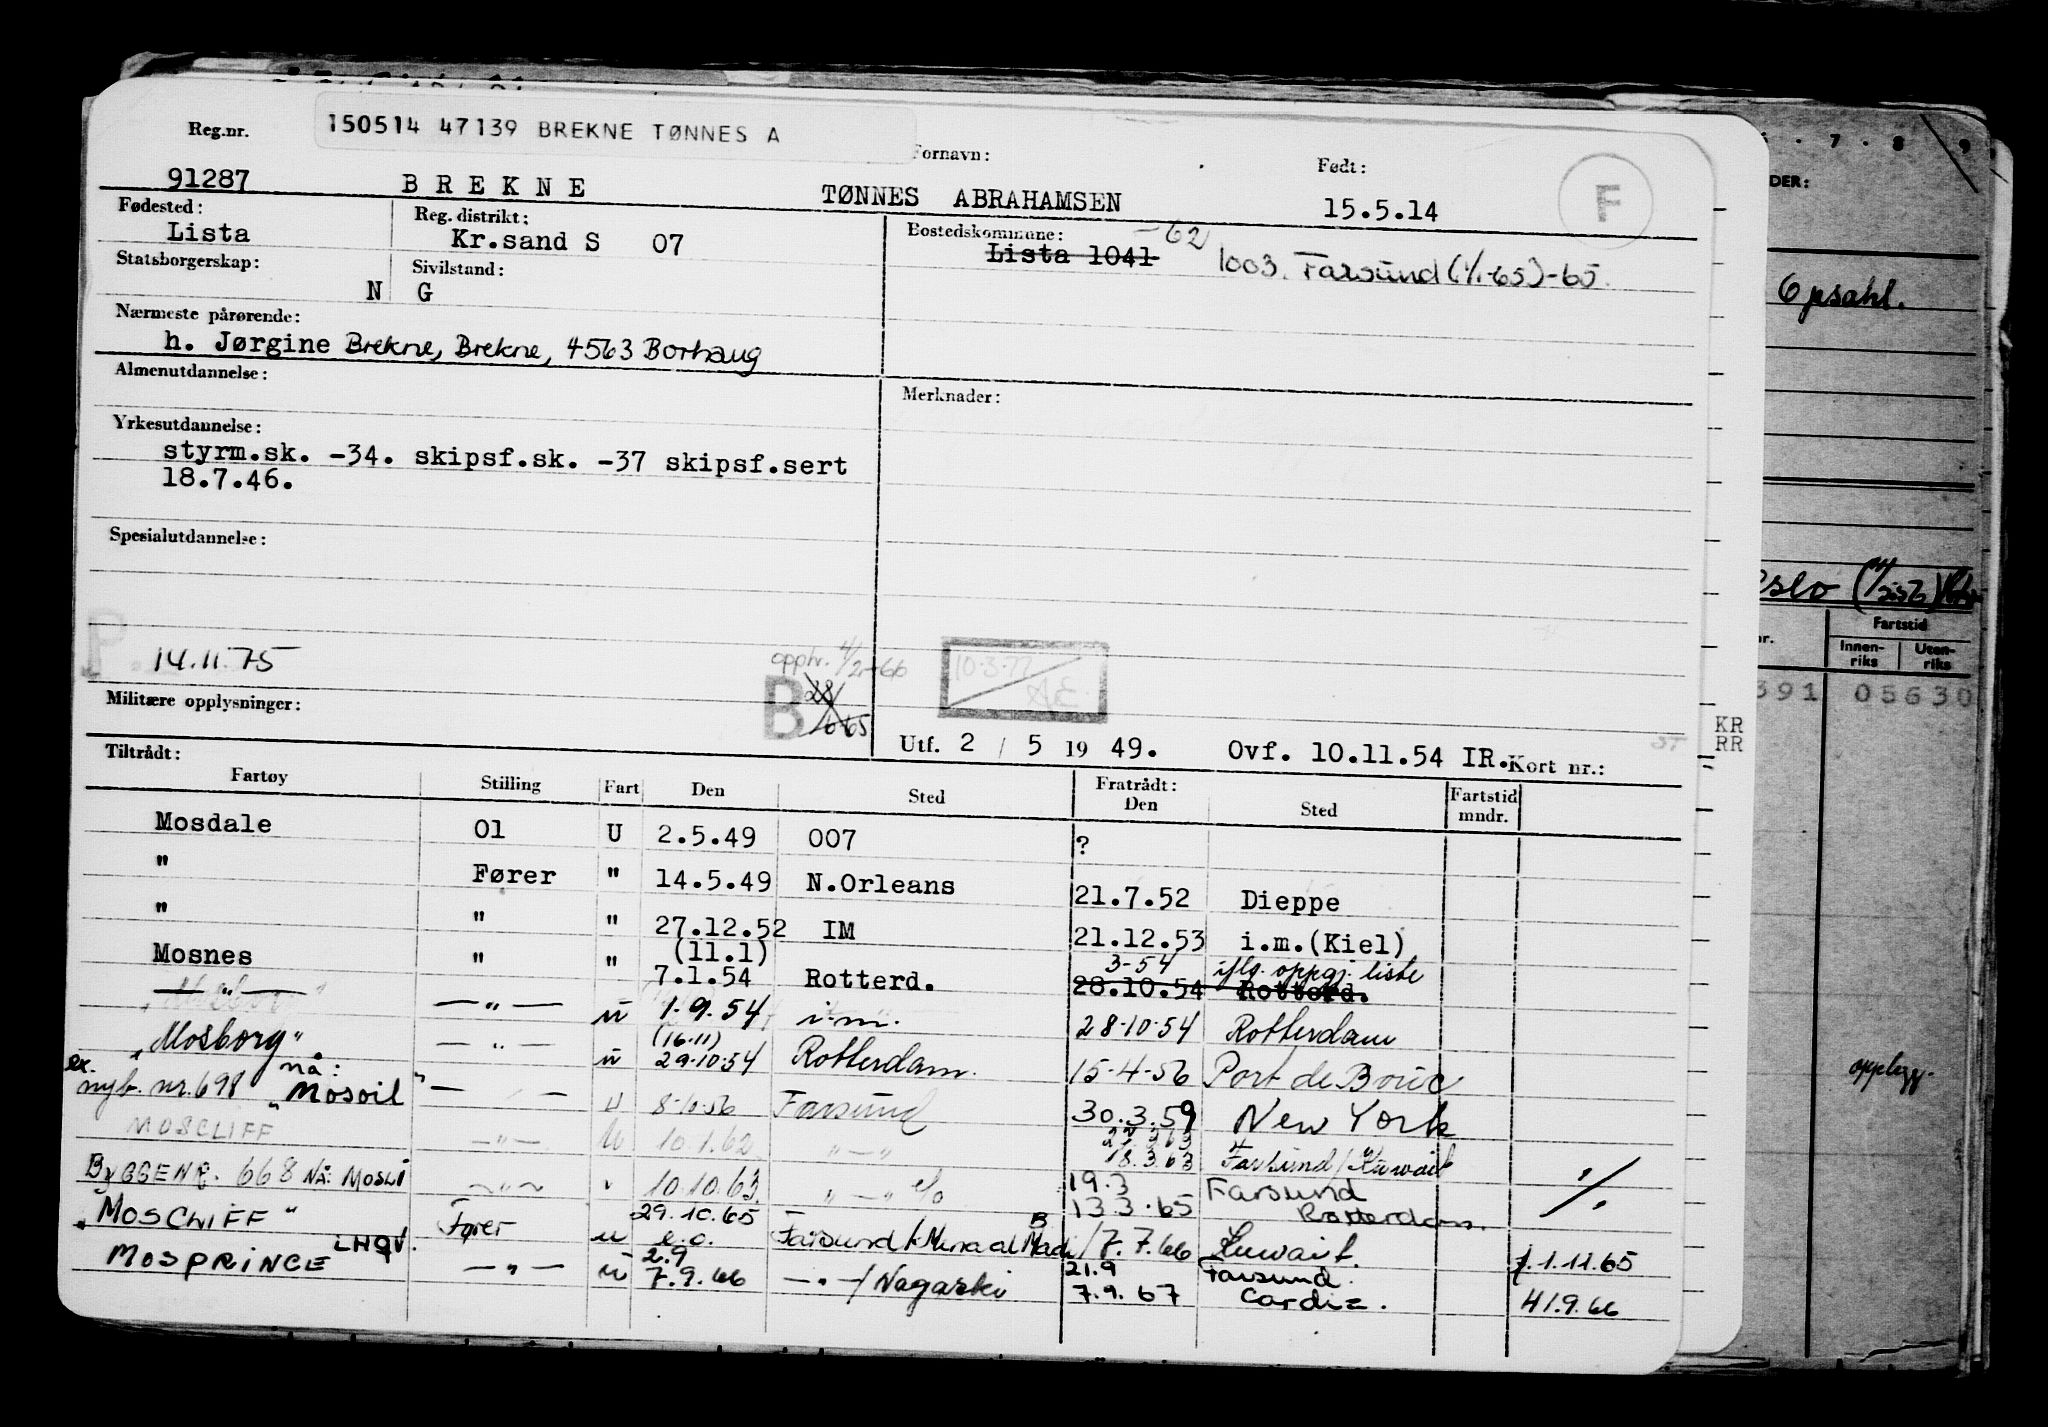 Reg.nr. 150514 47139 BREKNE TØNNES A
Fornavn: Født:
91287 BREKNE TØNNES ABRAHAMSEN 15.5.14 E
Fødested: Reg. distrikt: Bostedskommune: -62
Lista Kr.sand S 07 Lista 1041 1003. Farsund (1/1-65)-65.
Statsborgerskap: Sivilstand:
N G
Nærmeste pårørende:
h. Jørgine Brekne, Brekne, 4563 Borhaug
Almenutdannelse: Merknader:
Yrkesutdannelse:
styrm.sk. -34. skipsf.sk. -37 skipsf.sert
18.7.46.
Spesialutdannelse:
P. 14.11.75 opphr. 4/2-66 10.3.77
B 28/6 65 AE
Militære opplysninger:
Utf. 2 / 5 19 49. Ovf. 10.11.54 IR. Kort nr.:
Tiltrådt: Fratrådt:
Fartøy Stilling Fart Den Sted Den Sted Fartstid mndr.
Mosdale Ol U 2.5.49 007 ?
" Fører " 14.5.49 N.Orleans 21.7.52 Dieppe
" " " 27.12.52 IM 21.12.53 i.m.(Kiel)
(11.1) 3-54 iflg. oppgj. liste
Mosnes " " 7.1.54 Rotterd. 28.10.54 Rotterd.
— " — — " — u 1.9.54 i.m. 28.10.54 Rotterdam
(16.11)
"Mosborg" — " — u 29.10.54 Rotterdam. 15-4-56 Port de Bouc
ex. nyb. nr. 698 nå: "Mosoil" — " — u 8.10.56 Farsund 30.3.59 New York
MOSCLIFF — " — u 10.1.62 — " — 18.3.63 Farsund/Kuwait
BYGGENR. 668 NÅ: MOSLI — " — " 10.10.63 — " — e/o 19.3 Farsund
13.3.65 Rotterdam.
"MOSCLIFF" Fører u 29.10.65 e.o. Farsund/Mina al Madi 7.7.66 Kuwait. 1.11.65
MOSPRINCE LHQV. — " — u 2.9 21.9 Farsund.
7.9.66 — " —/Nagaski 7.9.67 Cardiz. 41.9.66
7 8 9
DER:
6 psahl.
Fartstid
Innen-riks Uten-riks
391 05630
KR
RR
opplegg.